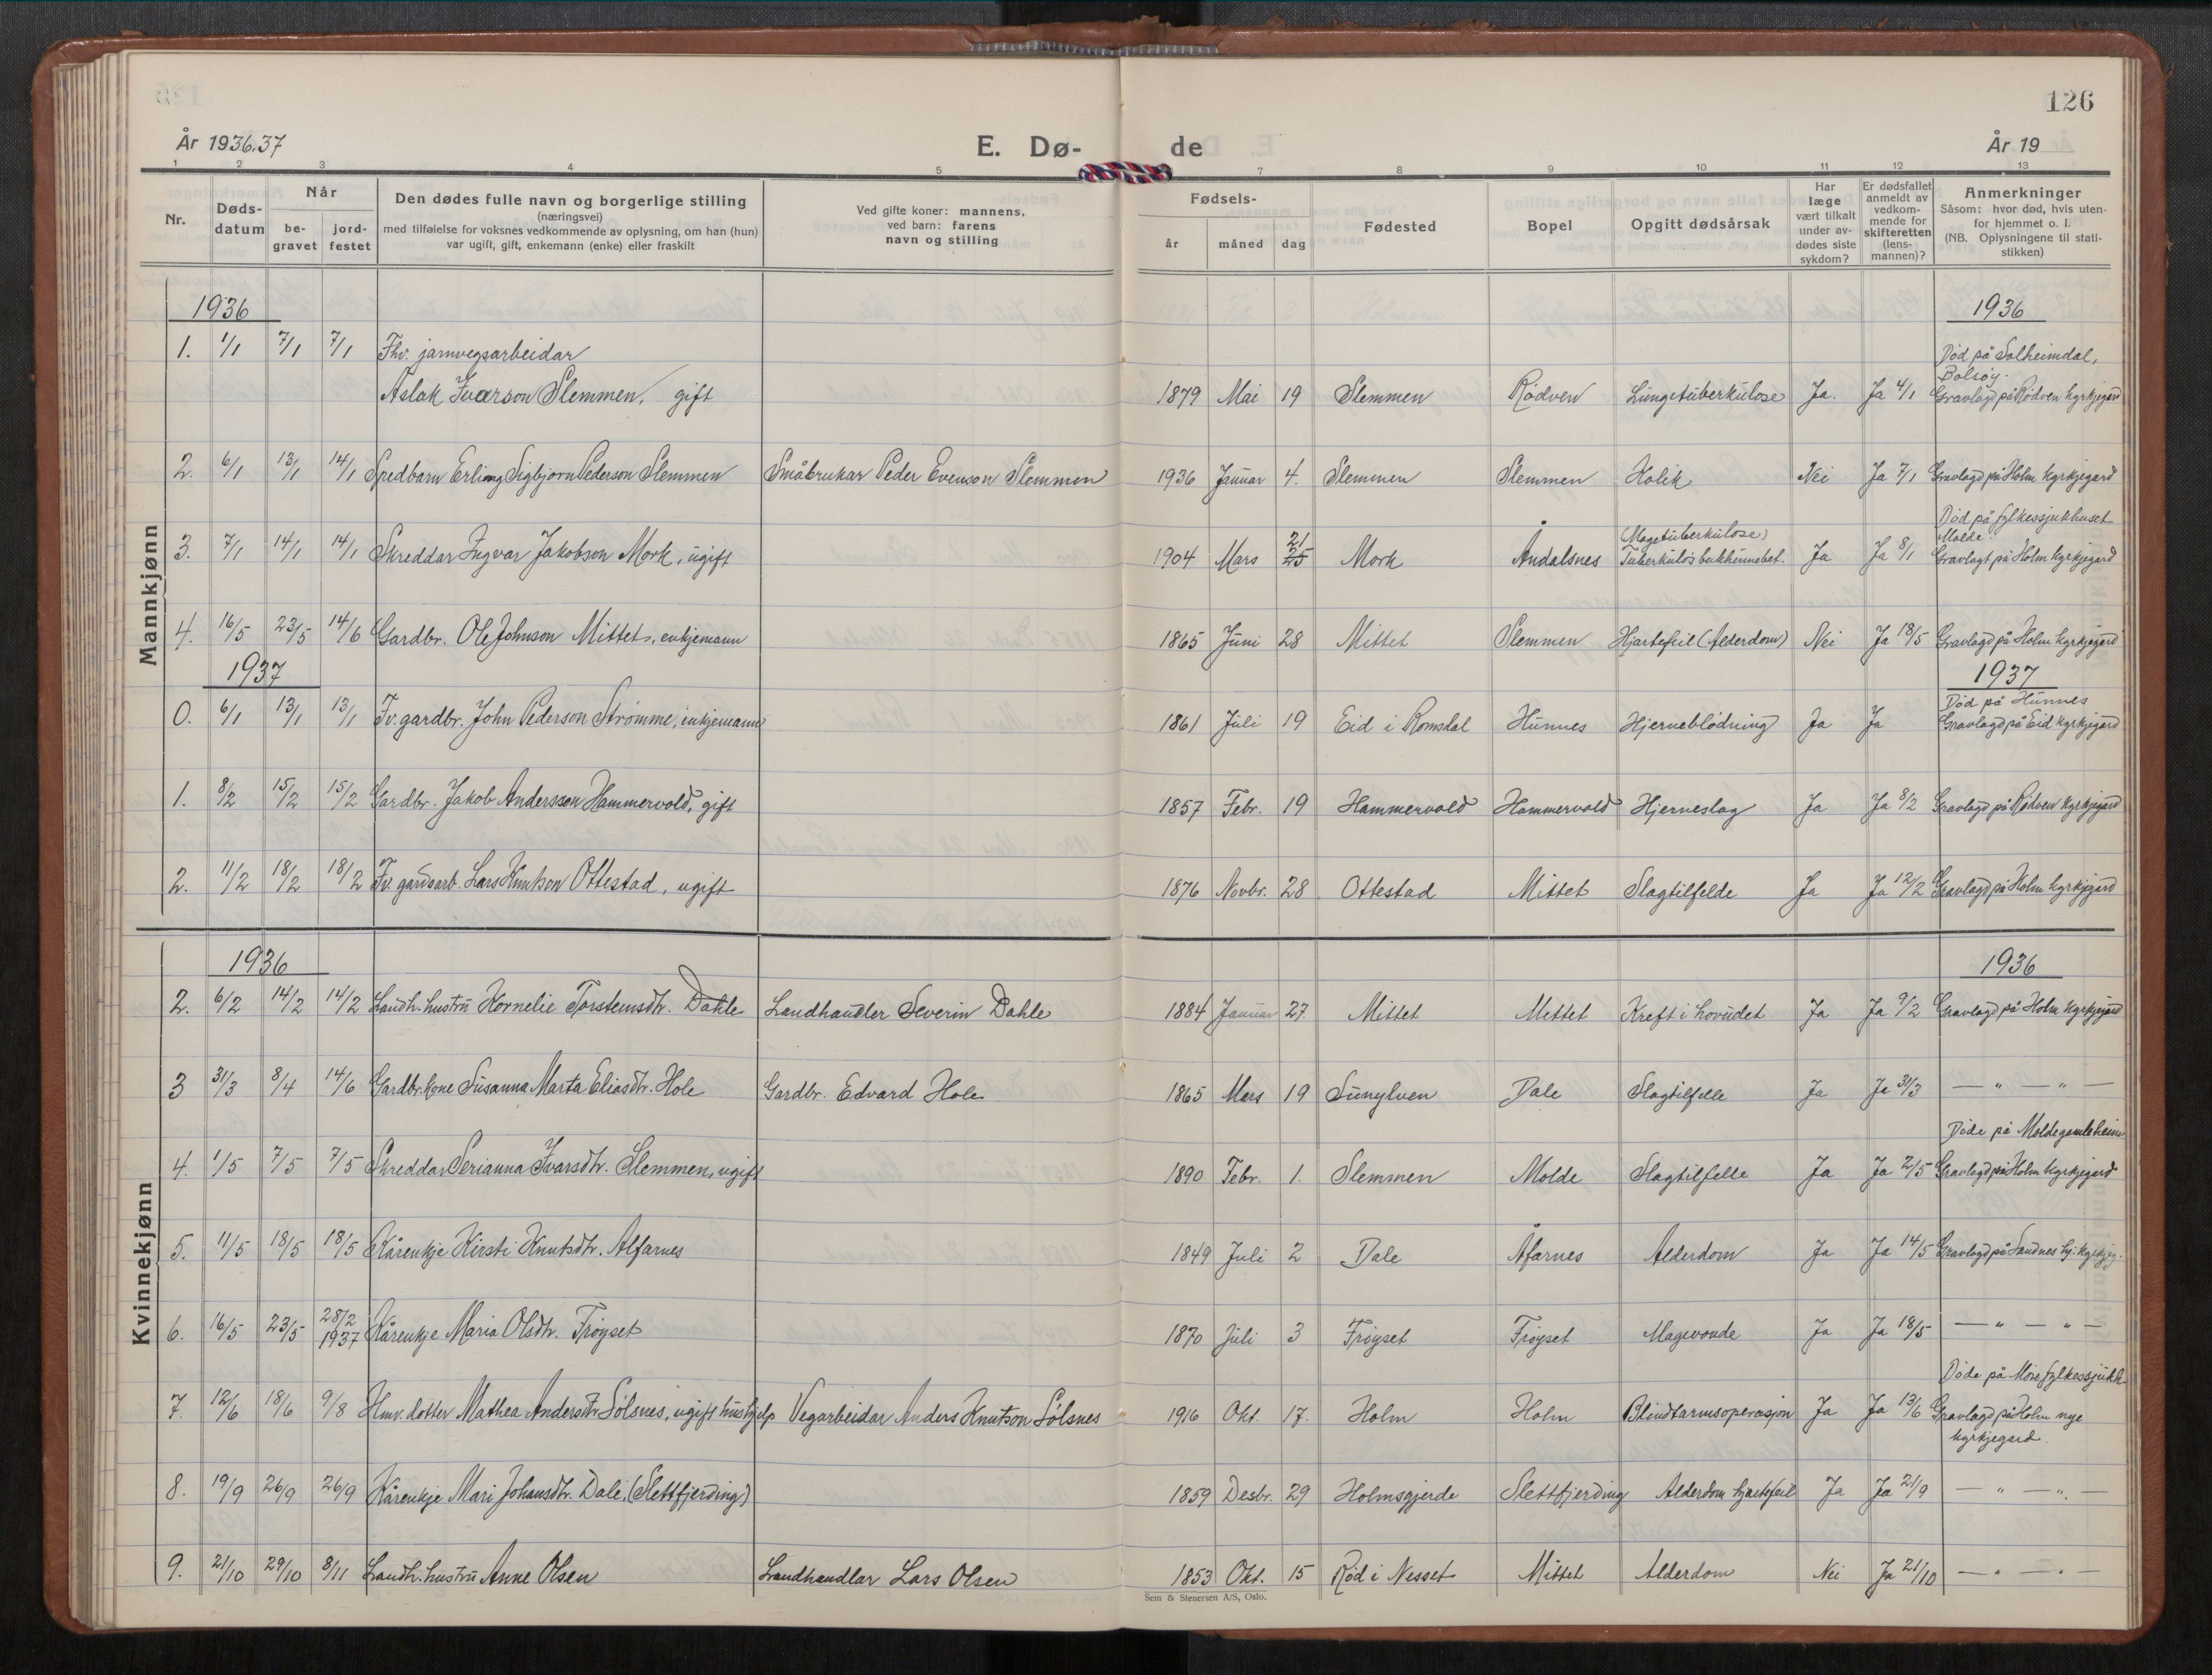 126
År 1936.37
E. Dø-
de
År 19
1 2 3 4 5 7 8 9 10 11 12 13
Nr.
Døds-
datum
Når
be-
gravet
jord-
festet
Den dødes fulle navn og borgerlige stilling
(næringsvei)
med tilføielse for voksnes vedkommende av oplysning, om han (hun)
var ugift, gift, enkemann (enke) eller fraskilt
Ved gifte koner: mannens,
ved barn: farens
navn og stilling
Fødsels-
år måned dag
Fødested
Bopel
Opgitt dødsårsak
Har
læge
vært tilkalt
under av-
dødes siste
sykdom?
Er dødsfallet
anmeldt av
vedkom-
mende for
skifteretten
(lens-
mannen)?
Anmerkninger
Såsom: hvor død, hvis uten-
for hjemmet o. l.
(NB. Oplysningene til stati-
stikken)
Mannkjønn
1936 1936
1. 1/1 7/1 7/1 Fhv. jarnvegsarbeidar Død på Solheimdal,
Bolsøy.
Aslak Ivarson Slemmen, gift 1879 Mai 19 Slemmen Rødven Lungetuberkulose Ja. Ja 4/1 Gravlagd på Rødven kyrkjegard
2. 6/1 13/1 14/1 Spedbarn Erling Sigbjørn Pederson Slemmen Småbrukar Peder Evenson Slemmen 1936 Januar 4. Slemmen Slemmen Kolik Nei Ja 7/1 Gravlagd på Holm kyrkjegard
Død på fylkessjukhuset
21 (Magetuberkulose) Molde.
3. 7/1 14/1 14/1 Skreddar Ingvar Jakobson Mork, ugift 1904 Mars 25 Mork Åndalsnes Tuberkuløs bukhinnebet. Ja Ja 8/1 Gravlagt på Holm kyrkjegard
4. 16/5 23/5 14/6 Gardbr. Ole Johnson Mittet, enkjemann 1865 Juni 28 Mittet Slemmen Hjartefeil (Alderdom) Nei Ja 18/5 Gravlagd på Holm kyrkjegard
1937 1937
Død på Hunnes
0. 6/1 13/1 13/1 Fv. gardbr. John Pederson Strømme, enkjemann 1861 Juli 19 Eid i Romsdal Hunnes Hjerneblødning Ja Ja Gravlagd på Eid kyrkjegard
1. 8/2 15/2 15/2 Gardbr. Jakob Andersson Hammervold, gift 1857 Febr. 19 Hammervold Hammervold Hjerneslag Ja Ja 8/2 Gravlagd på Rødven kyrkjegard
2. 11/2 18/2 18/2 Fv. gardsarb. Lars Knutson Ottestad, ugift 1876 Novbr. 28 Ottestad Mittet Slagtilfelde Ja Ja 12/2 Gravlagd på Holm kyrkjegard
Kvinnekjønn
1936 1936
2. 6/2 14/2 14/2 Landh. hustru Kornelie Torsteinsdtr. Dahle Landhandler Severin Dahle 1884 Januar 27. Mittet Mettet Kreft i hovudet Ja Ja 9/2 Gravlagd på Holm kyrkjegard
3 31/3 8/4 14/6 Gardbr. kone Susanna Marta Eliasdtr. Hole Gardbr. Edvard Hole 1865 Mars 19 Sunylven Dale Slagtilfelle Ja Ja 31/3 — " — " —
Døde på Molde gamleheim
4. 1/5 7/5 7/5 Skreddar Serianna Ivarsdtr. Slemmen, ugift 1890 Febr. 1. Slemmen Molde Slagtilfelle Ja Ja 2/5 Gravlagd på Holm kyrkjegard
5. 11/5 18/5 18/5 Kårenkje Kirsti Knutsdtr. Alfarnes 1849 Juli 2 Dale Åfarnes Alderdom Ja Ja 14/5 Gravlagd på Sandnes hj. kyrkjeg.
6. 16/5 23/5 28/2 1937 Kårenkje Maria Olsdtr. Frøyset 1870 Juli 3 Frøyset Frøyset Magevonde Ja Ja 18/5 — " — " —
Døde på Møre fylkessjukh.
7. 12/6 18/6 9/8 Hmv. dotter Mathea Andersdtr. Sølsnes, ugift hushjelp Vegarbeidar Anders Knutson Sølsnes 1916 Okt. 17. Holm Holm Blindtarmsoperasjon Ja Ja 13/6 Gravlagd på Holm nye
kyrkjegard.
8. 19/9 26/9 26/9 Kårenkje Mari Johansdtr. Dale, (Slettfjerding) 1859 Desbr. 29 Holmsgjerde Slettfjerding Alderdom hjartefeil Ja Ja 21/9 — " — " —
9. 21/10 29/10 8/11 Landh. hustru Anne Olsen Landhandlar Lars Olsen 1853 Okt. 15 Rød i Nesset Mittet Alderdom Nei Ja 21/10 — " — " —
Sem & Stenersen A/S, Oslo.